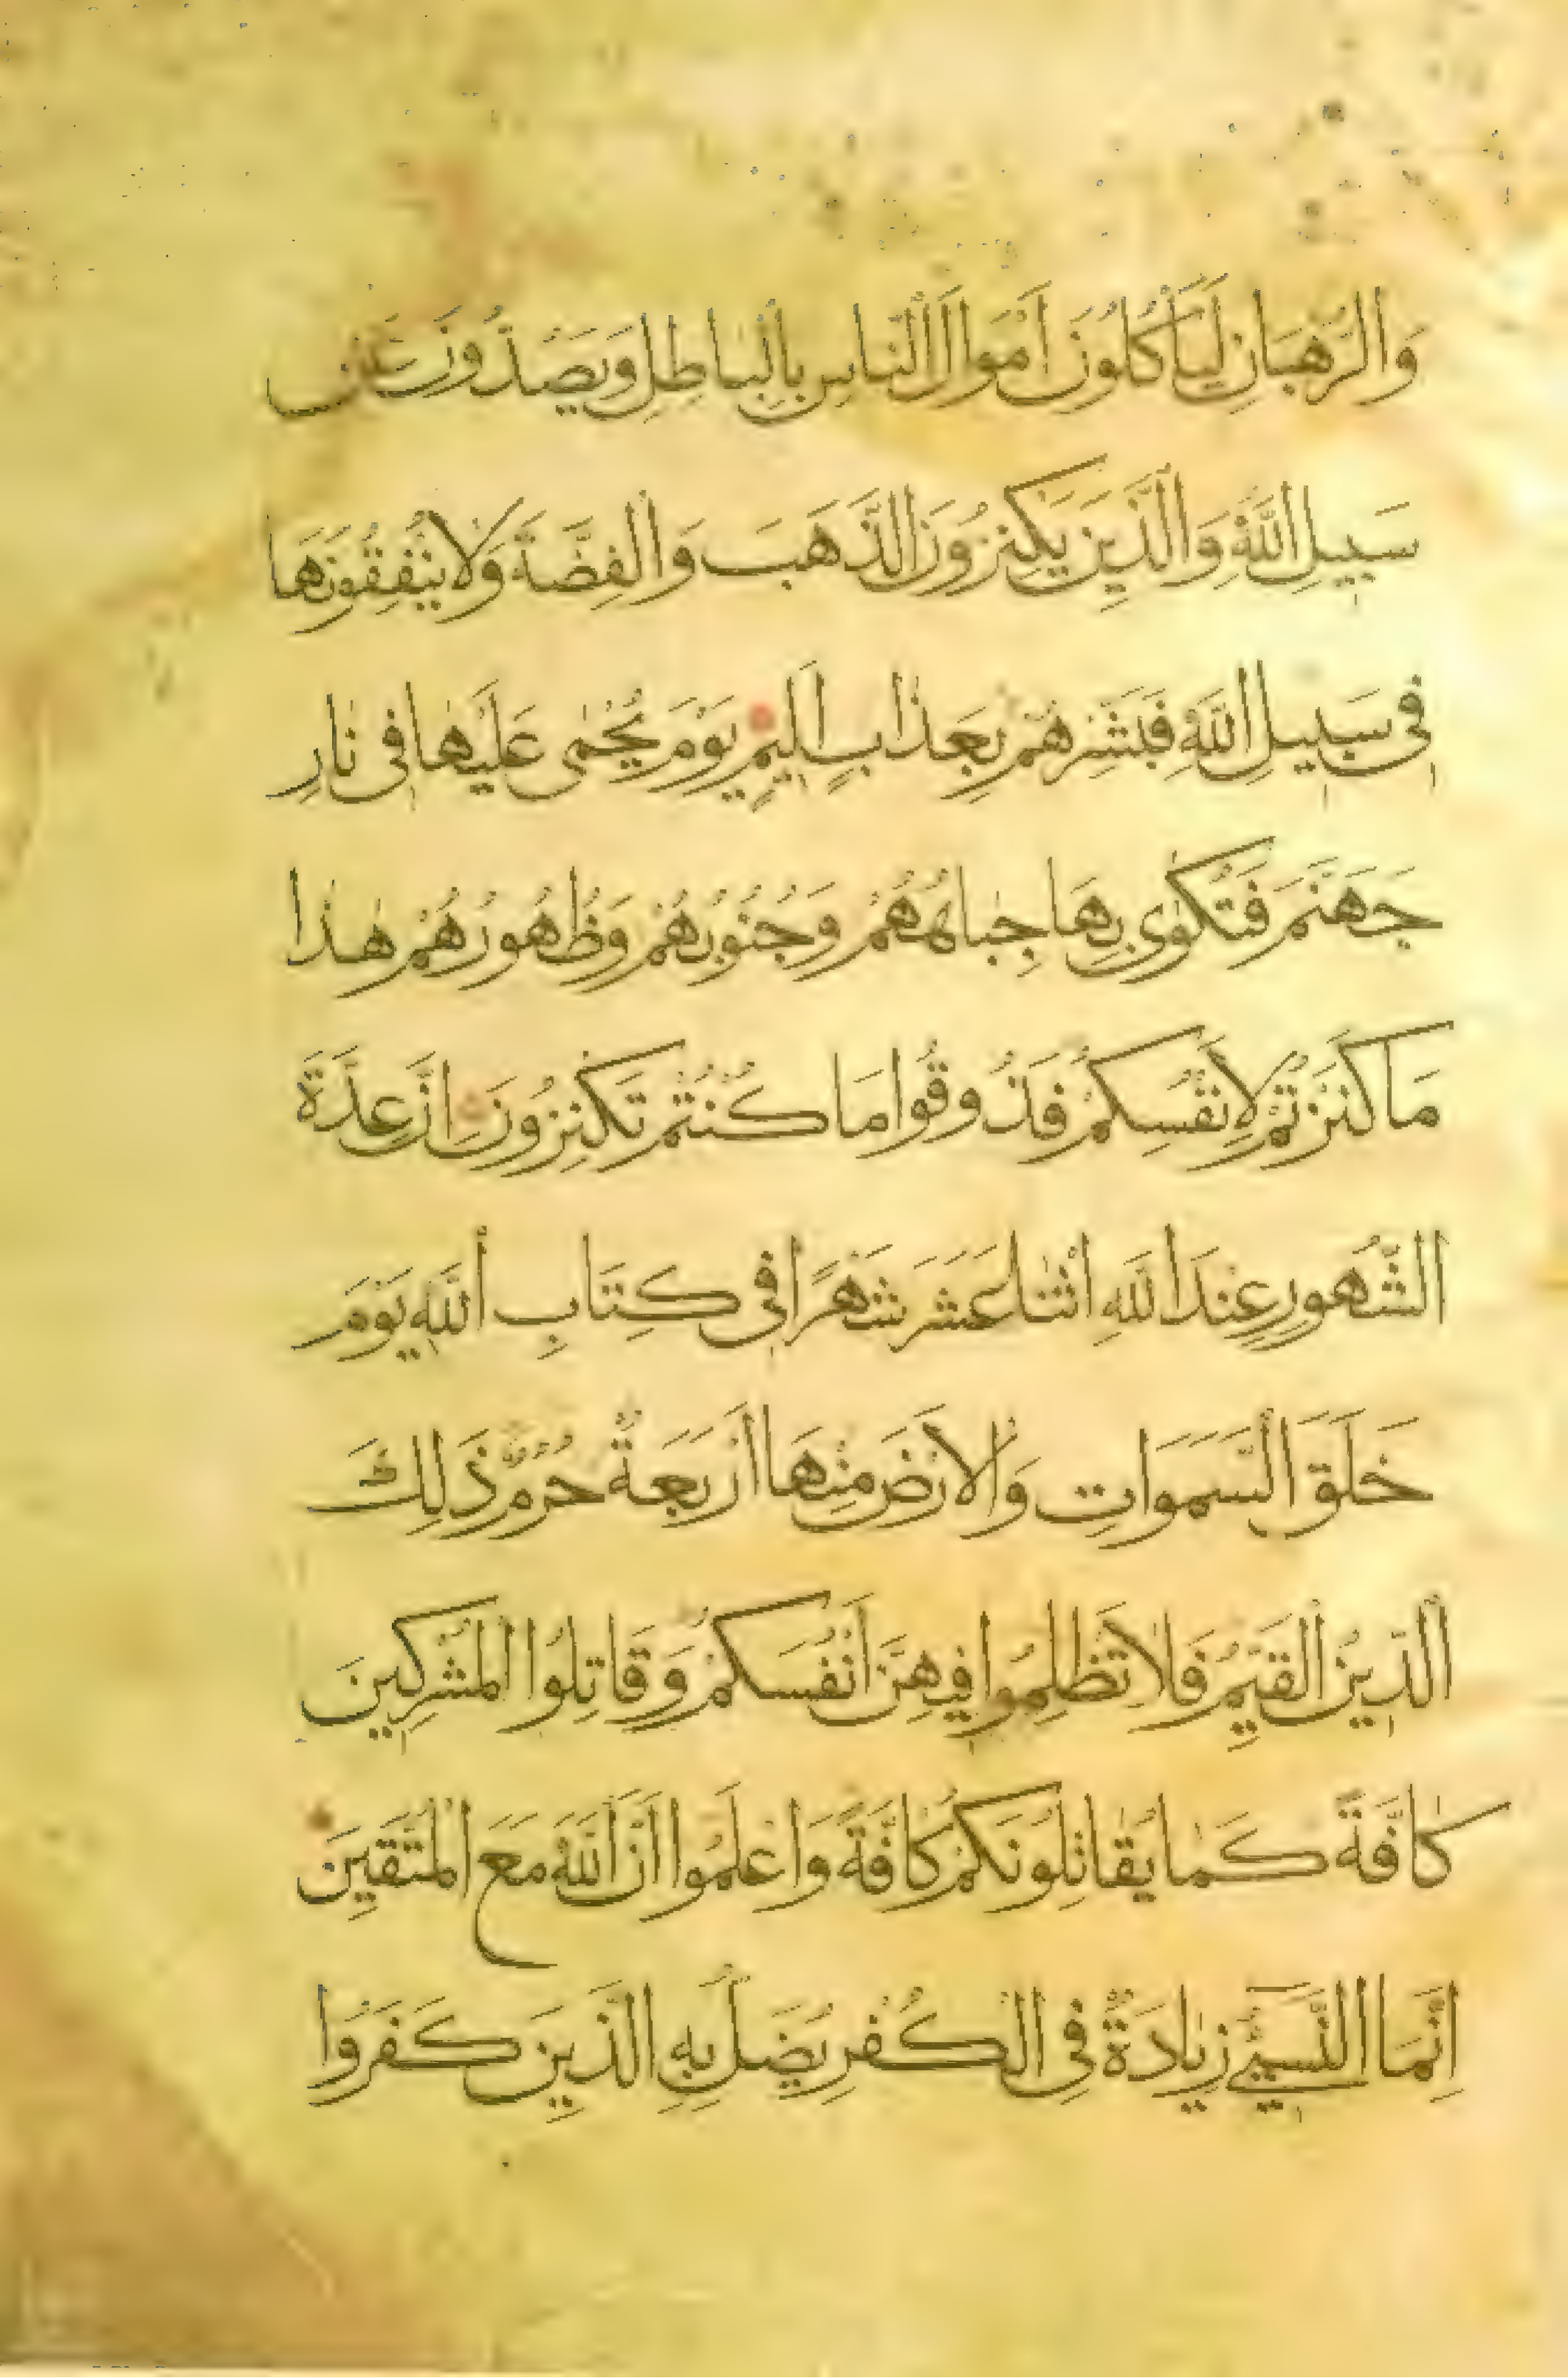 وَالرُّهْبَانِ لَيَأْكُلُونَ أَمْوَالَ النَّاسِ بِالْبَاطِلِ وَيَصُدُّونَ عَنْ
سَبِيلِ اللَّهِ وَالَّذِينَ يَكْنِزُونَ الذَّهَبَ وَالْفِضَّةَ وَلَا يُنْفِقُونَهَا
فِي سَبِيلِ اللَّهِ فَبَشِّرْهُمْ بِعَذَابٍ أَلِيمٍ يَوْمَ يُحْمَى عَلَيْهَا فِي نَارِ
جَهَنَّمَ فَتُكْوَى بِهَا جِبَاهُهُمْ وَجُنُوبُهُمْ وَظُهُورُهُمْ هَذَا
مَا كَنَزْتُمْ لِأَنْفُسِكُمْ فَذُوقُوا مَا كُنْتُمْ تَكْنِزُونَ إِنَّ عِدَّةَ
الشُّهُورِ عِنْدَ اللَّهِ اثْنَا عَشَرَ شَهْرًا فِي كِتَابِ اللَّهِ يَوْمَ
خَلَقَ السَّمَوَاتِ وَالْأَرْضَ مِنْهَا أَرْبَعَةٌ حُرُمٌ ذَلِكَ
الدِّينُ الْقَيِّمُ فَلَا تَظْلِمُوا فِيهِنَّ أَنْفُسَكُمْ وَقَاتِلُوا الْمُشْرِكِينَ
كَافَّةً كَمَا يُقَاتِلُونَكُمْ كَافَّةً وَاعْلَمُوا أَنَّ اللَّهَ مَعَ الْمُتَّقِينَ
إِنَّمَا النَّسِيءُ زِيَادَةٌ فِي الْكُفْرِ يُضَلُّ بِهِ الَّذِينَ كَفَرُوا